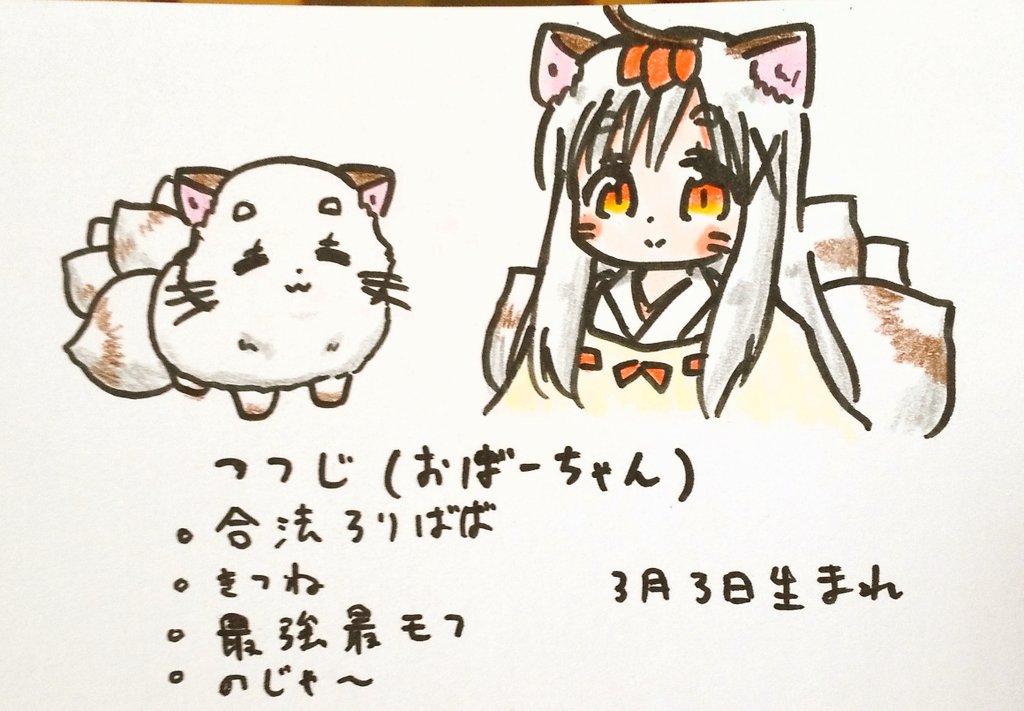 つつじ(おばーちゃん)
・合法ろりばば
・きつね
・最強最モフ
・のじゃ〜
3月3日生まれ